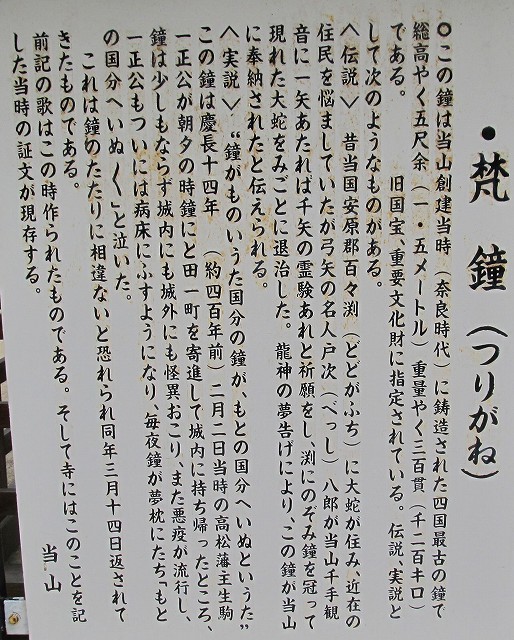 ・梵鐘（つりがね）
○この鐘は当山創建当時（奈良時代）に鋳造された四国最古の鐘で
総高やく五尺余（一・五メートル）重量やく三百貫（千二百キロ）
である。　旧国宝、重要文化財に指定されている。伝説、実説と
して次のようなものがある。
〈伝説〉　昔当国安原郡百々渕（どどがふち）に大蛇が住み、近在の
住民を悩ましていたが弓矢の名人戸次（べっし）八郎が当山千手観
音に一矢あたれば千矢の霊験あれと祈願をし、渕にのぞみ鐘を冠って
現れた大蛇をみごとに退治した。龍神の夢告げにより、この鐘が当山
に奉納されたと伝えられる。
〈実説〉　“鐘がものいうた国分の鐘が、もとの国分へいぬというた”
この鐘は慶長十四年　（約四百年前）二月二日当時の高松藩王生駒
一正公が朝夕の時鐘にと田一町を寄進して城内に持ち帰ったところ、
鐘は少しもならず城内にも城外にも怪異おこり、また悪疫が流行し、
一正公もついには病床にふすようになり、毎夜鐘が夢枕にたち「もと
の国分へいぬ〱」と泣いた。
これは鐘のたたりに相違ないと恐れられ同年三月十四日返されて
きたものである。
前記の歌はこの時作られたものである。そして寺にはこのことを記
した当時の証文が現存する。
当山